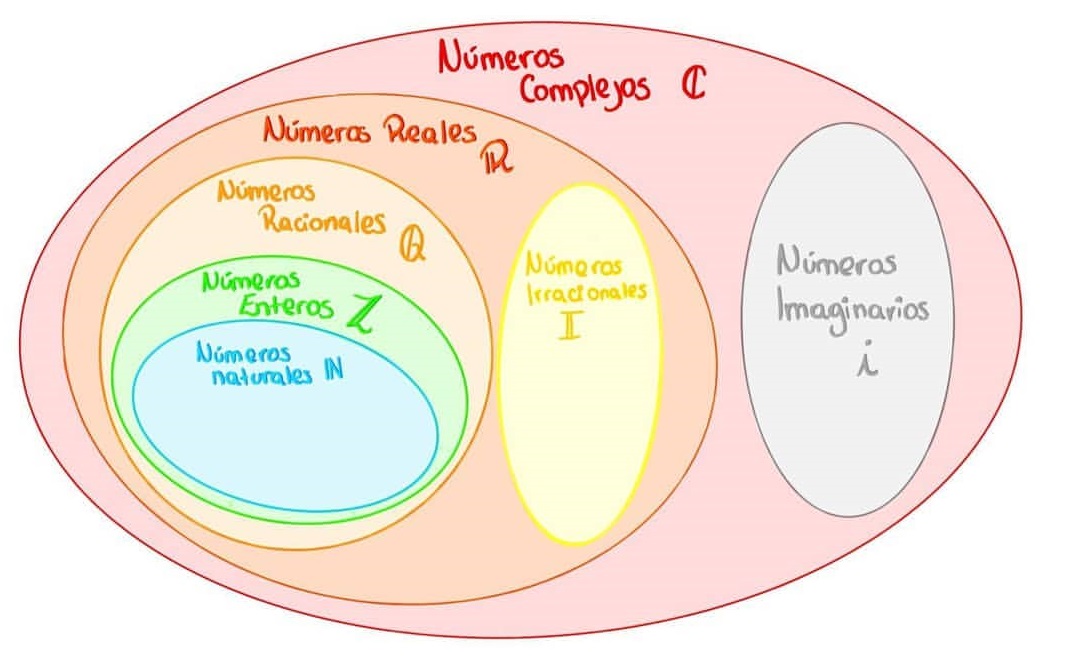 Números
Complejos ℂ
Números Reales
ℝ
Números
Racionales
ℚ
Números
Enteros ℤ
Números
naturales ℕ
Números
Irracionales
𝕀
Números
Imaginarios
i